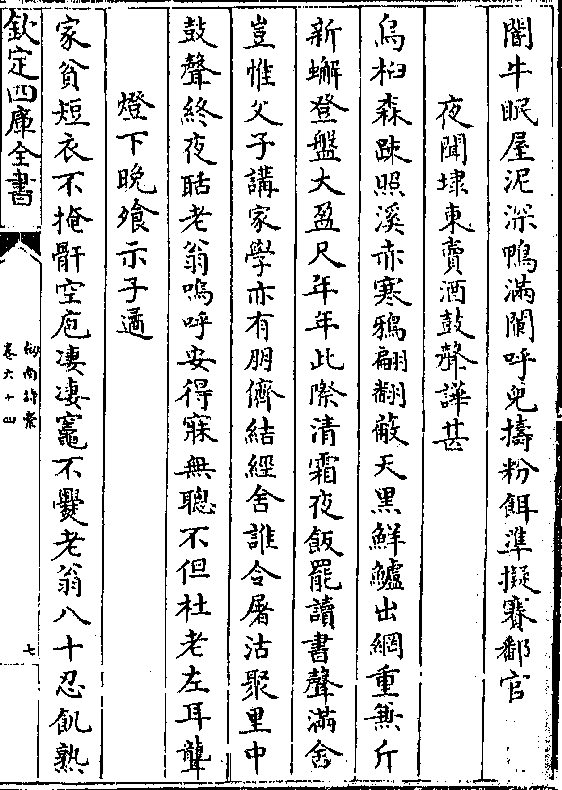 闇牛眠屋泥深鴨滿闌呼兒擣粉餌準擬賽鄰官
夜聞埭東賣酒鼓聲譁甚
烏桕森疎照溪赤寒鴉翩翻蔽天黑鮮鱸出網重兼斤
新蠏登盤大盈尺年年此際清霜夜飯罷讀書聲滿舍
豈惟父子講家學亦有朋儕結經舍誰令屠沽聚里中
鼓聲終夜聒老翁嗚呼安得寐無聰不但杜老左耳聾
燈下晚飱示子遹
家貧短衣不掩骭空庖凄凄竈不爨老翁八十忍飢熟
欽定四庫全書
劍南詩槀
卷六十四
七